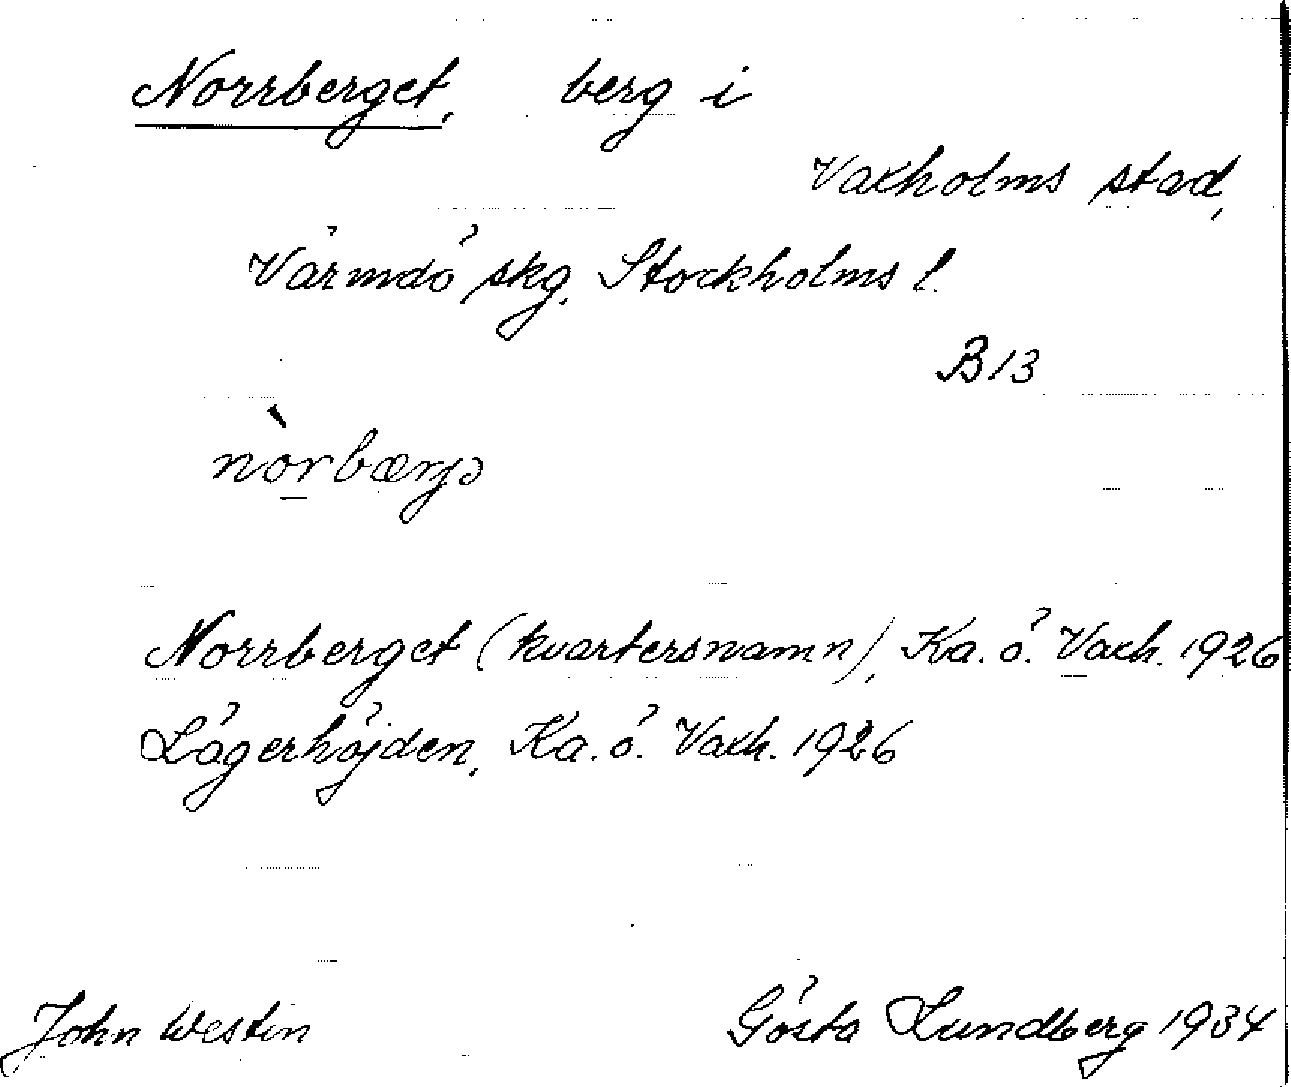 Norrberget, berg i
Vaxholms stad,
Värmdö skg, Stockholms l.
B13
nòrbærjə
Norrberget (kvartersnamn), Ka. ö. Vaxh. 1926
Lägerhöjden, Ka. ö. Vaxh. 1926
John Westin Gösta Lundberg 1934